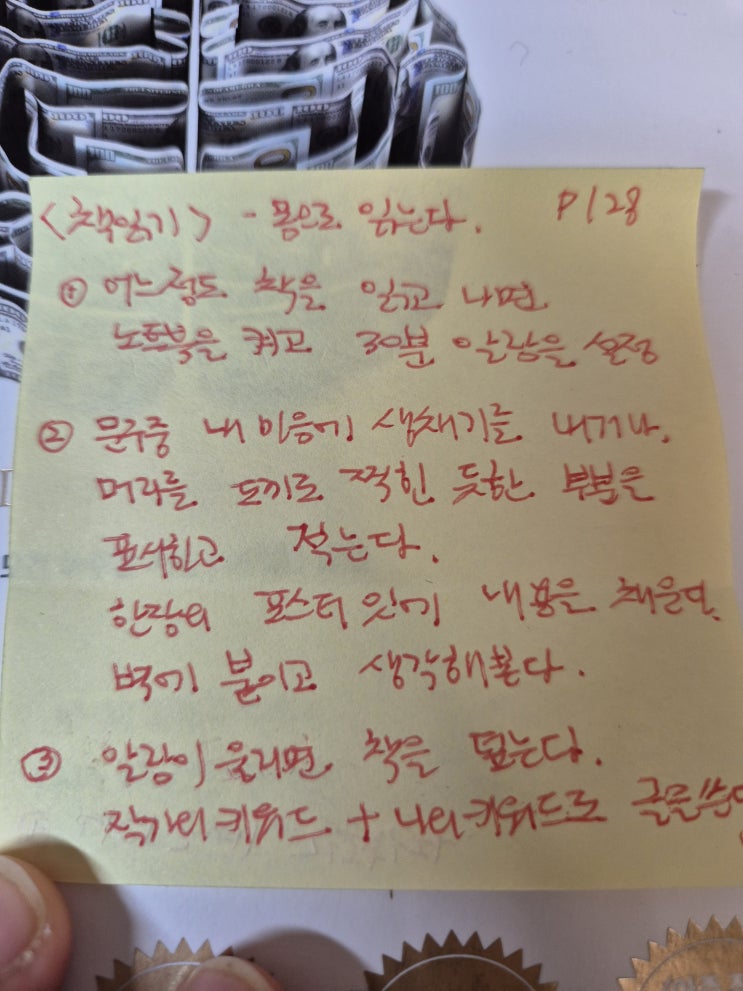 <책읽기> - 몸으로 읽는다. P128
① 어느정도 책을 읽고 나면
노트북을 켜고 30분 알람을 설정
② 문구중 내 마음에 생채기를 내거나,
머리를 도끼로 찍힌 듯한 부분은
표시하고 적는다.
한장의 포스터 잇에 내용을 채운다.
벽에 붙이고 생각해본다.
③ 알람이 울리면 책을 덮는다.
작가의 키워드 + 나의 키워드로 글을쓴다
100
100